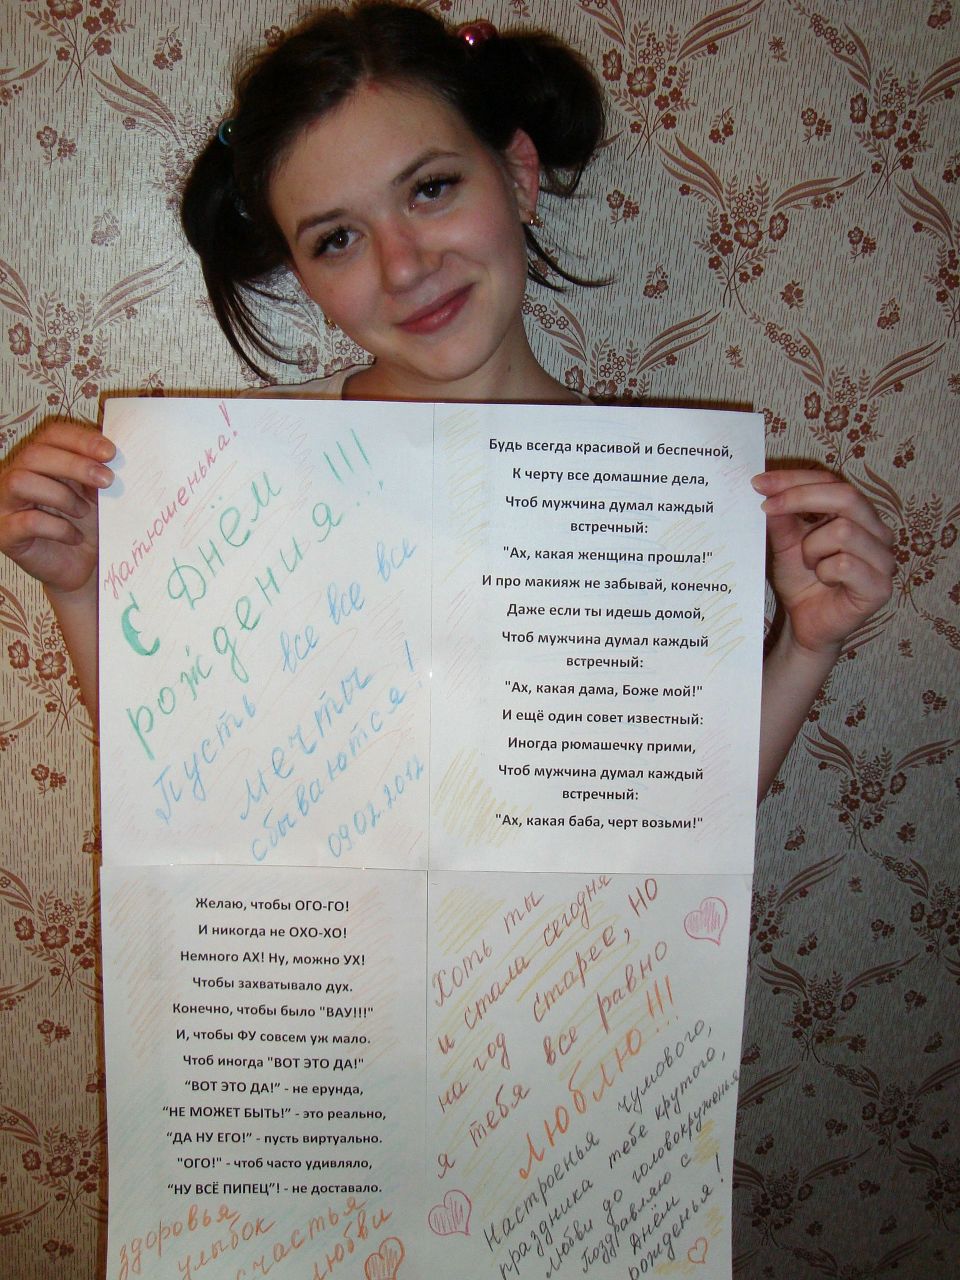 Катюшенька!
С Днём
рождения!!!
Пусть все все все
мечты
сбываются!
09.02.2012
Будь всегда красивой и беспечной,
К черту все домашние дела,
Чтоб мужчина думал каждый
встречный:
"Ах, какая женщина прошла!"
И про макияж не забывай, конечно,
Даже если ты идешь домой,
Чтоб мужчина думал каждый
встречный:
"Ах, какая дама, Боже мой!"
И ещё один совет известный:
Иногда рюмашечку прими,
Чтоб мужчина думал каждый
встречный:
"Ах, какая баба, черт возьми!"
Желаю, чтобы ОГО-ГО!
И никогда не ОХО-ХО!
Немного АХ! Ну, можно УХ!
Чтобы захватывало дух.
Конечно, чтобы было "ВАУ!!!"
И, чтобы ФУ совсем уж мало.
Чтоб иногда "ВОТ ЭТО ДА!"
“ВОТ ЭТО ДА!” - не ерунда,
“НЕ МОЖЕТ БЫТЬ!” - это реально,
“ДА НУ ЕГО!” - пусть виртуально.
"ОГО!" - чтоб часто удивляло,
“НУ ВСЁ ПИПЕЦ”! - не доставало.
здоровья
улыбок
счастья
любви
Хоть ты
и стала сегодня
на год старее, но
я тебя все равно
люблю!!!
Настроенья чумового,
праздника тебе крутого,
любви до головокруженья
Поздравляю с
Днём
рожденья!